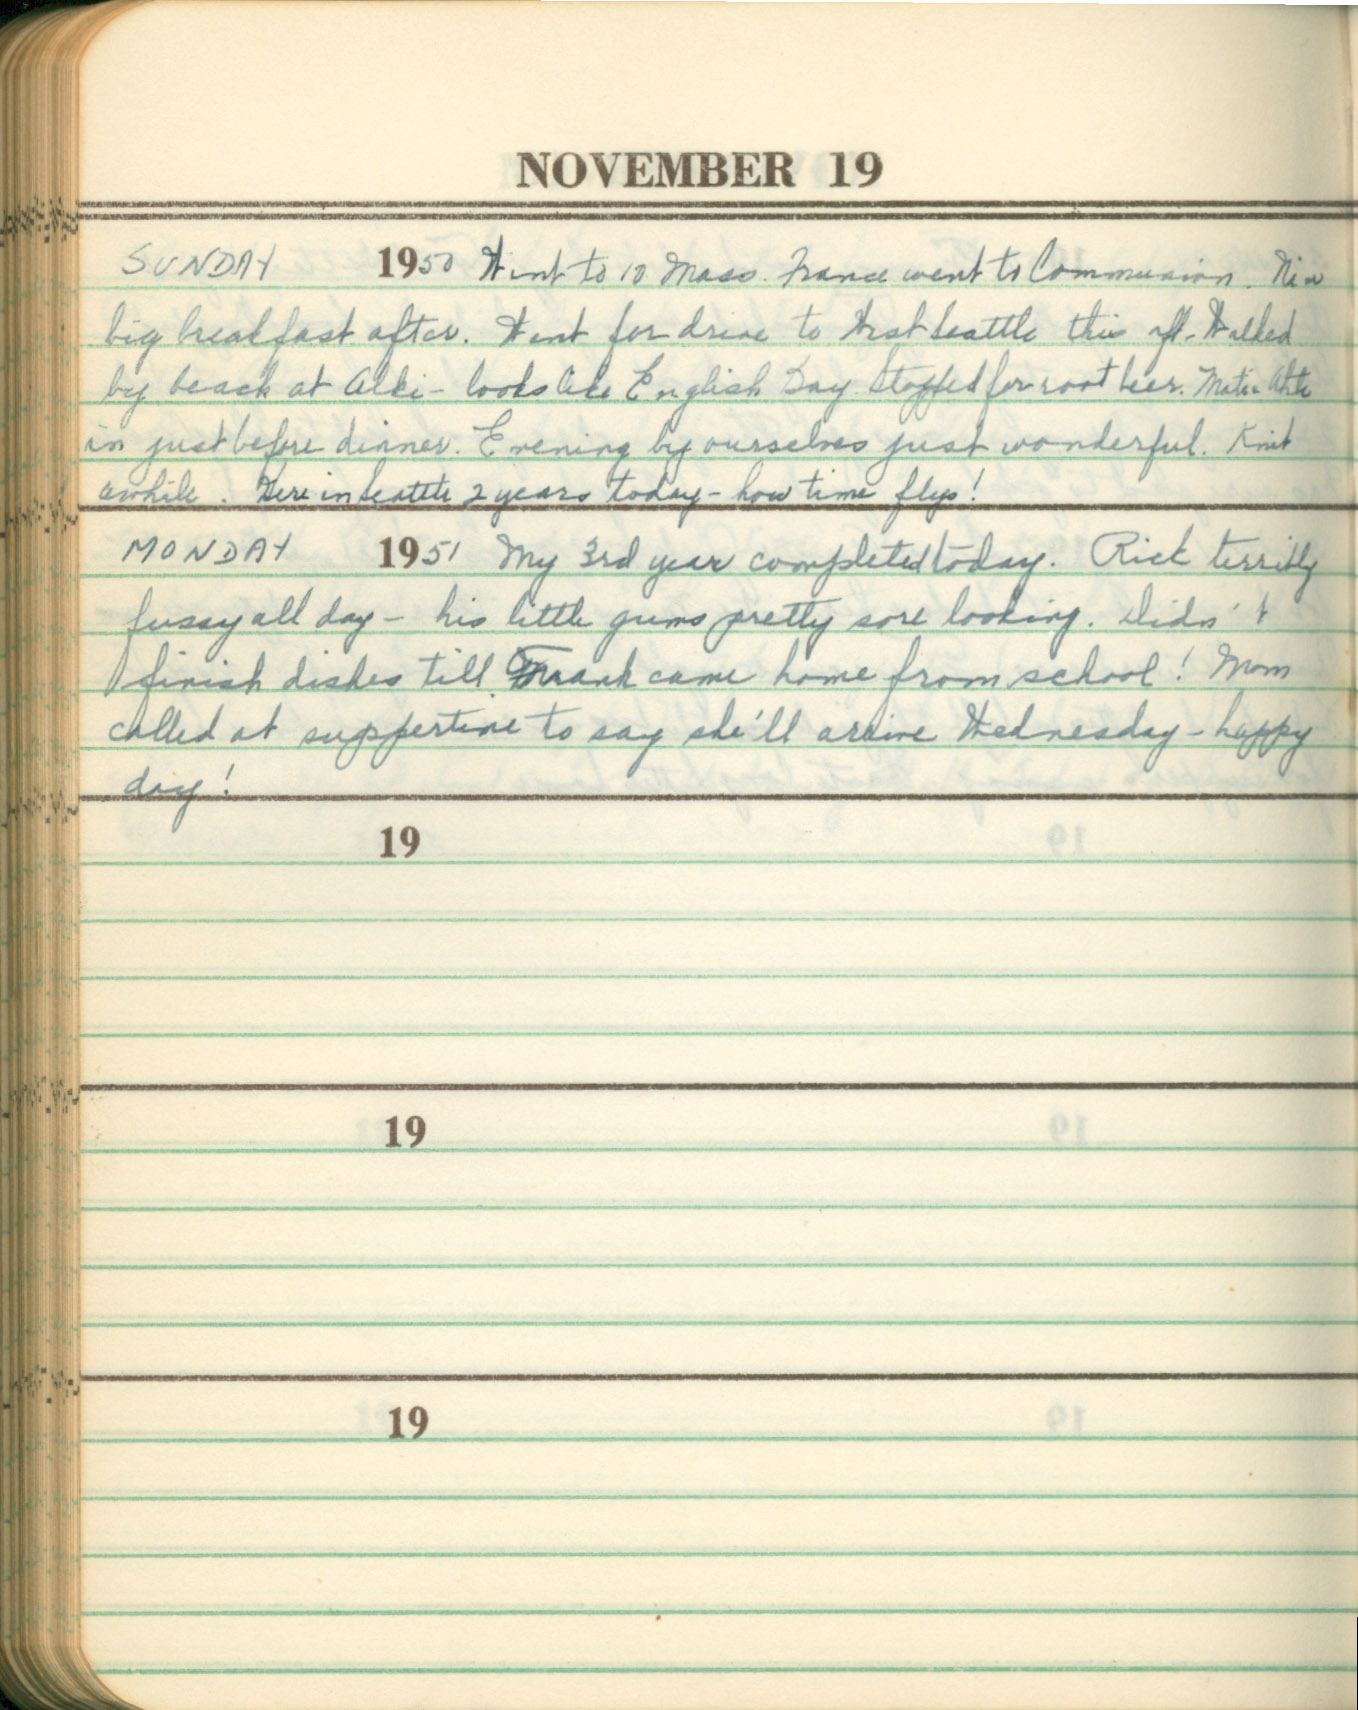 NOVEMBER 19
SUNDAY 1950 Went to 10 Mass. France went to Communion. Nice
big breakfast after. Went for drive to West Seattle this aft. Walked
by beach at Alki - looks like English Bay. Stopped for root beer.
in just before dinner. Evening by ourselves just wonderful. Knit
awhile. Here in Seattle 2 years today - how time flys!
MONDAY 1951 My 3rd year completed today. Rick terribly
fussy all day - his little gums pretty sore looking. Didn't
finish dishes till Frank came home from school! Mom
called at suppertime to say she'll arrive Wednesday - happy
day!
19
19
19